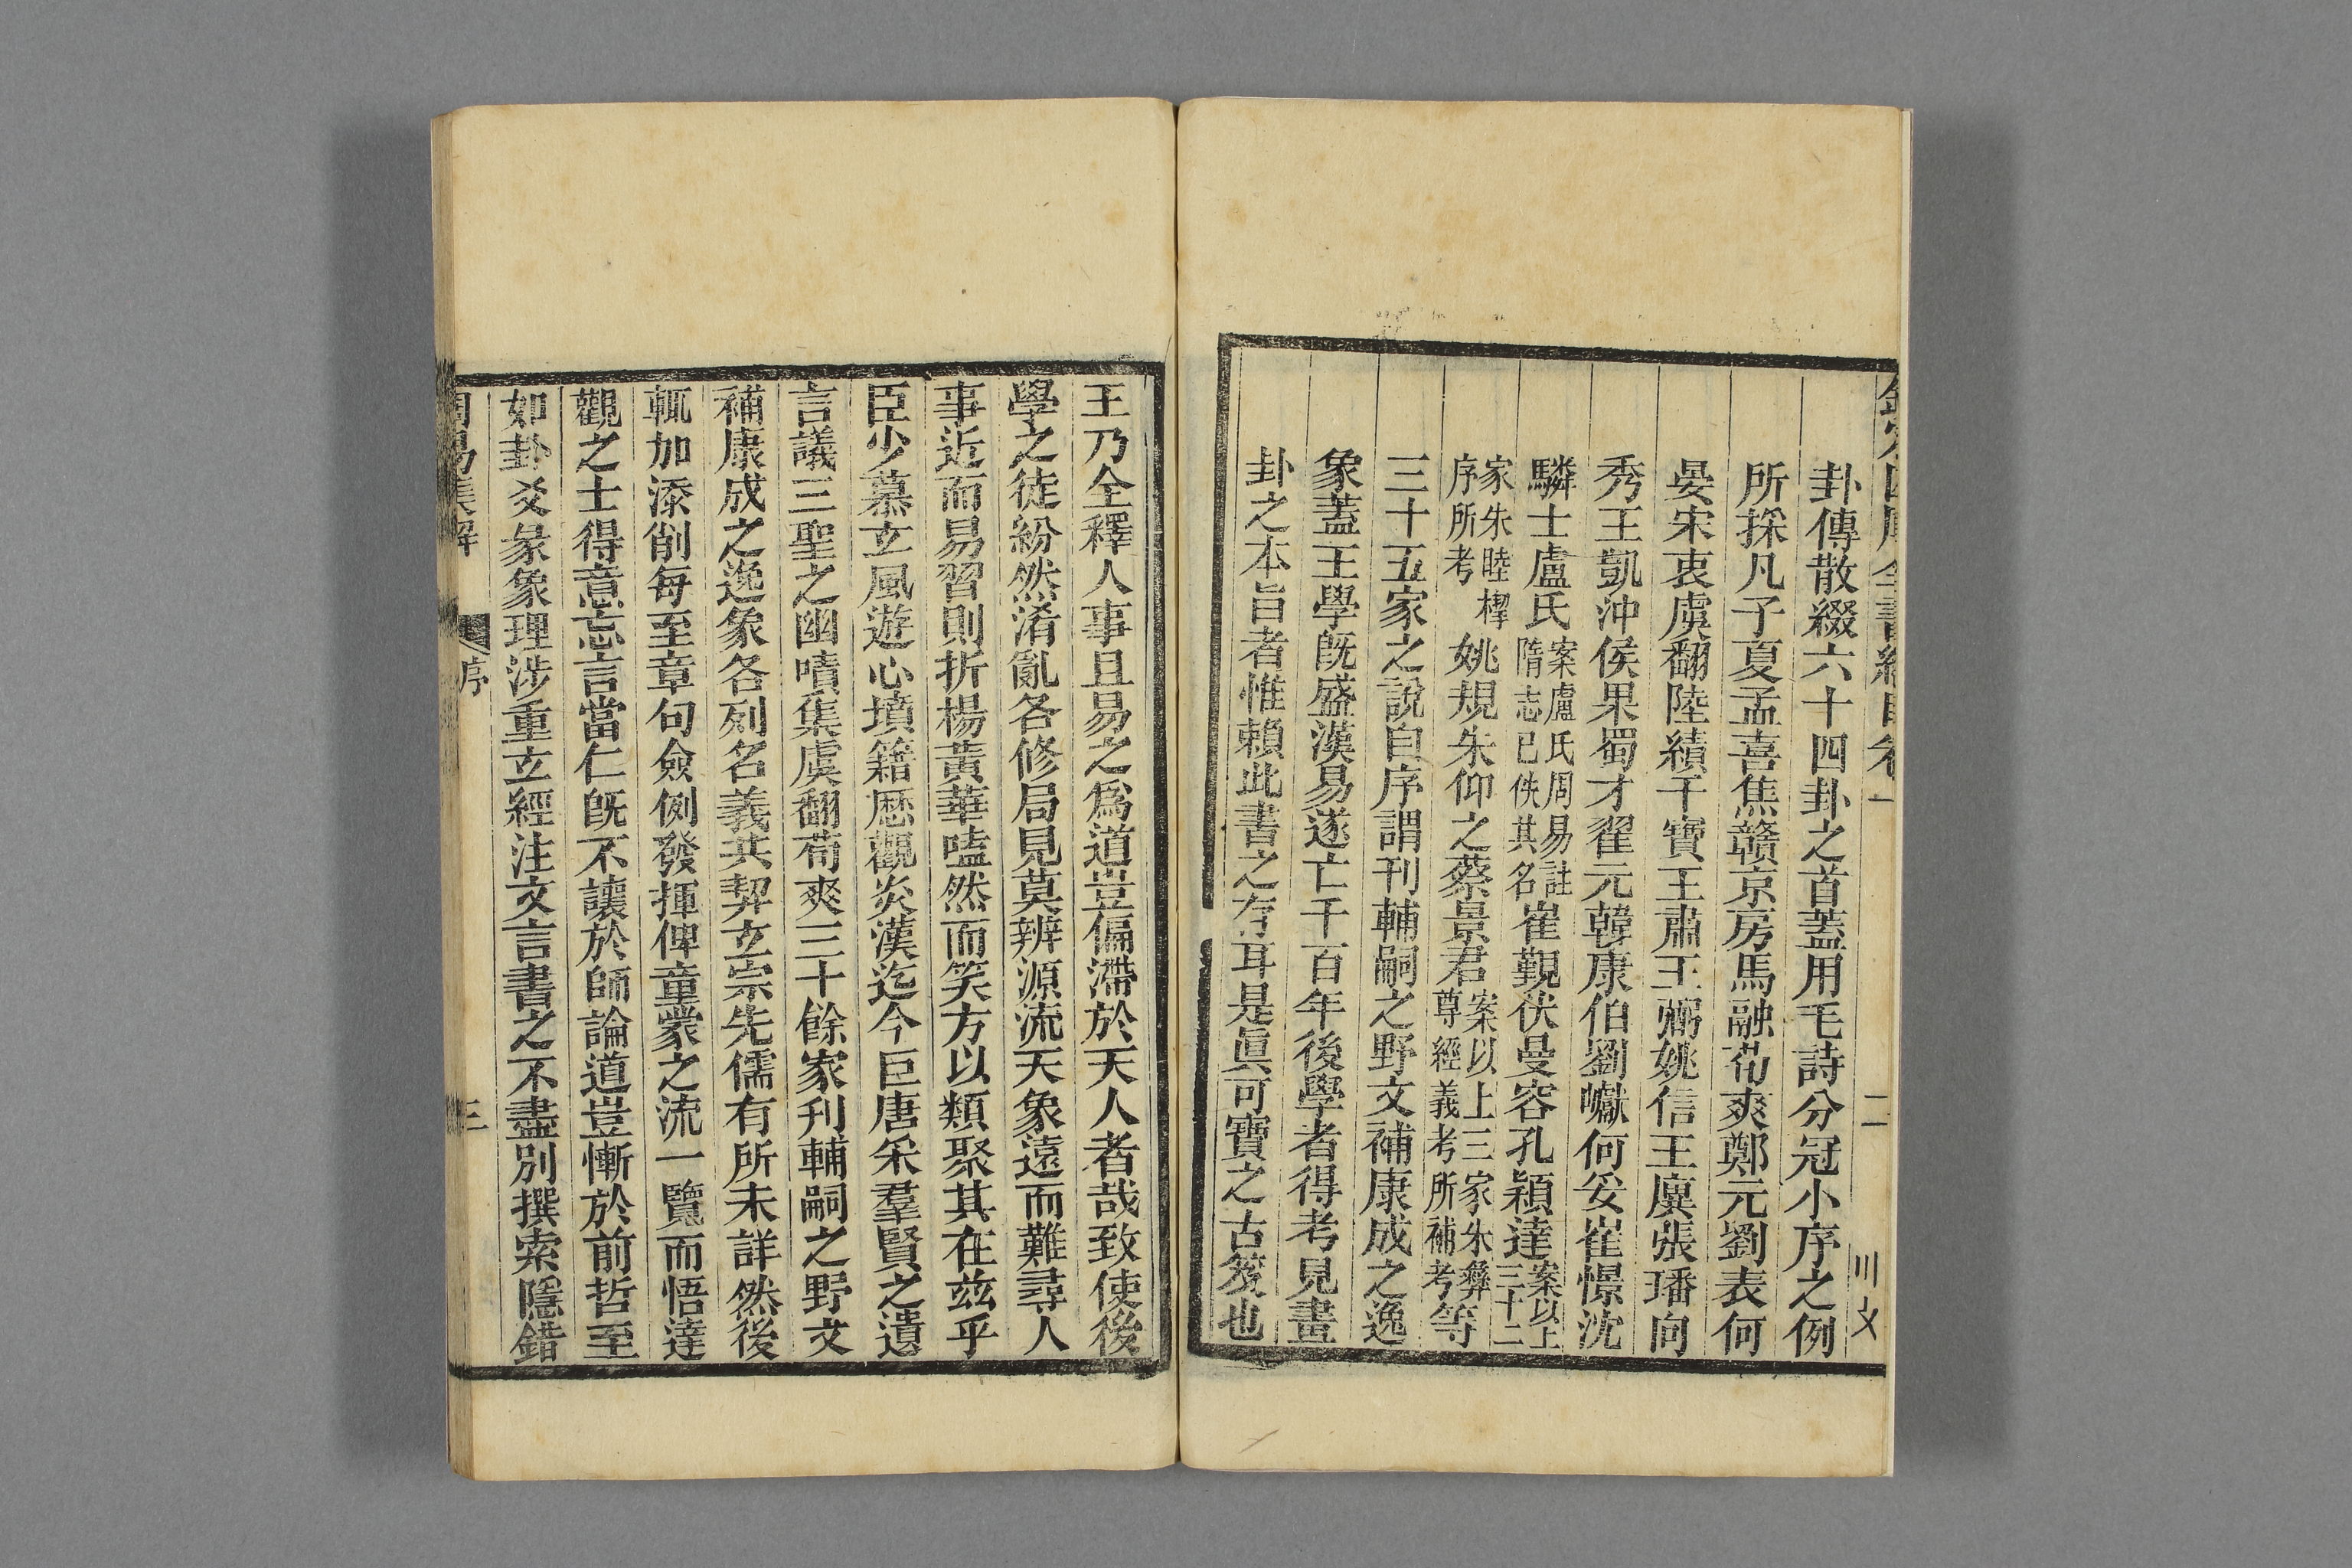 欽定四庫全書總目卷一
二
卦傳散綴六十四卦之首蓋用毛詩分冠小序之例
所採凡子夏孟喜焦贛京房馬融荀爽鄭元劉表何
晏宋衷虞翻陸績干寶王肅王弼姚信王廙張璠向
秀王凱沖侯果蜀才翟元韓康伯劉巘何妥崔憬沈
驎士盧氏案盧氏周易註隋志已佚其名崔覲伏曼容孔穎達案以上三十二
家朱睦㮮序所考姚規朱仰之蔡景君案以上三家朱彝尊經義考所補考等
三十五家之說自序謂刊輔嗣之野文補康成之逸
象蓋王學旣盛漢易遂亡千百年後學者得考見畫
卦之本旨者惟賴此書之存耳是眞可寶之古笈也
王乃全釋人事且易之爲道豈偏滯於天人者哉致使後
學之徒紛然淆亂各修局見莫辨源流天象遠而難尋人
事近而易習則折楊黃華嗑然而笑方以類聚其在玆乎
臣少慕玄風遊心墳籍歷觀炎漢迄今巨唐采羣賢之遺
言議三聖之幽嘖集虞翻荀爽三十餘家刊輔嗣之野文
補康成之逸象各列名義共契玄宗先儒有所未詳然後
輒加添削每至章句僉例發揮俾童蒙之流一覽而悟達
觀之士得意忘言當仁旣不讓於師論道豈慚於前哲至
如卦爻彖象理涉重玄經注文言書之不盡別撰索隱錯
周易集解
序
三